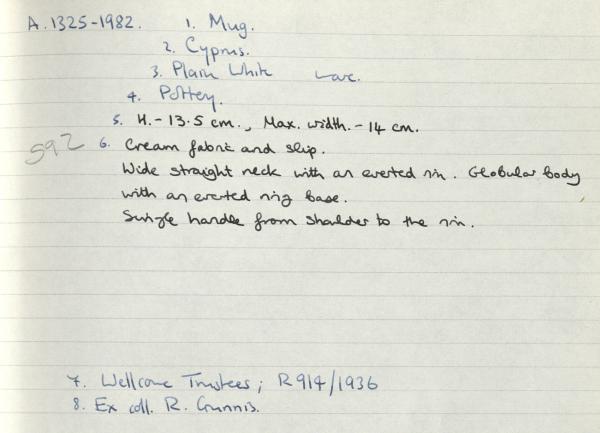 A.1325-1982. 1. Mug.
2. Cyprus.
3. Plain White Ware.
4. Pottery.
5. H.- 13.5 cm., Max. width.- 14 cm.
592 6. Cream fabric and slip.
Wide straight neck with an everted rim. Globular body
with an everted ring base.
Single handle from shoulder to the rim.
7. Wellcome Trustees; R914/1936
8. Ex coll. R. Gunnis.